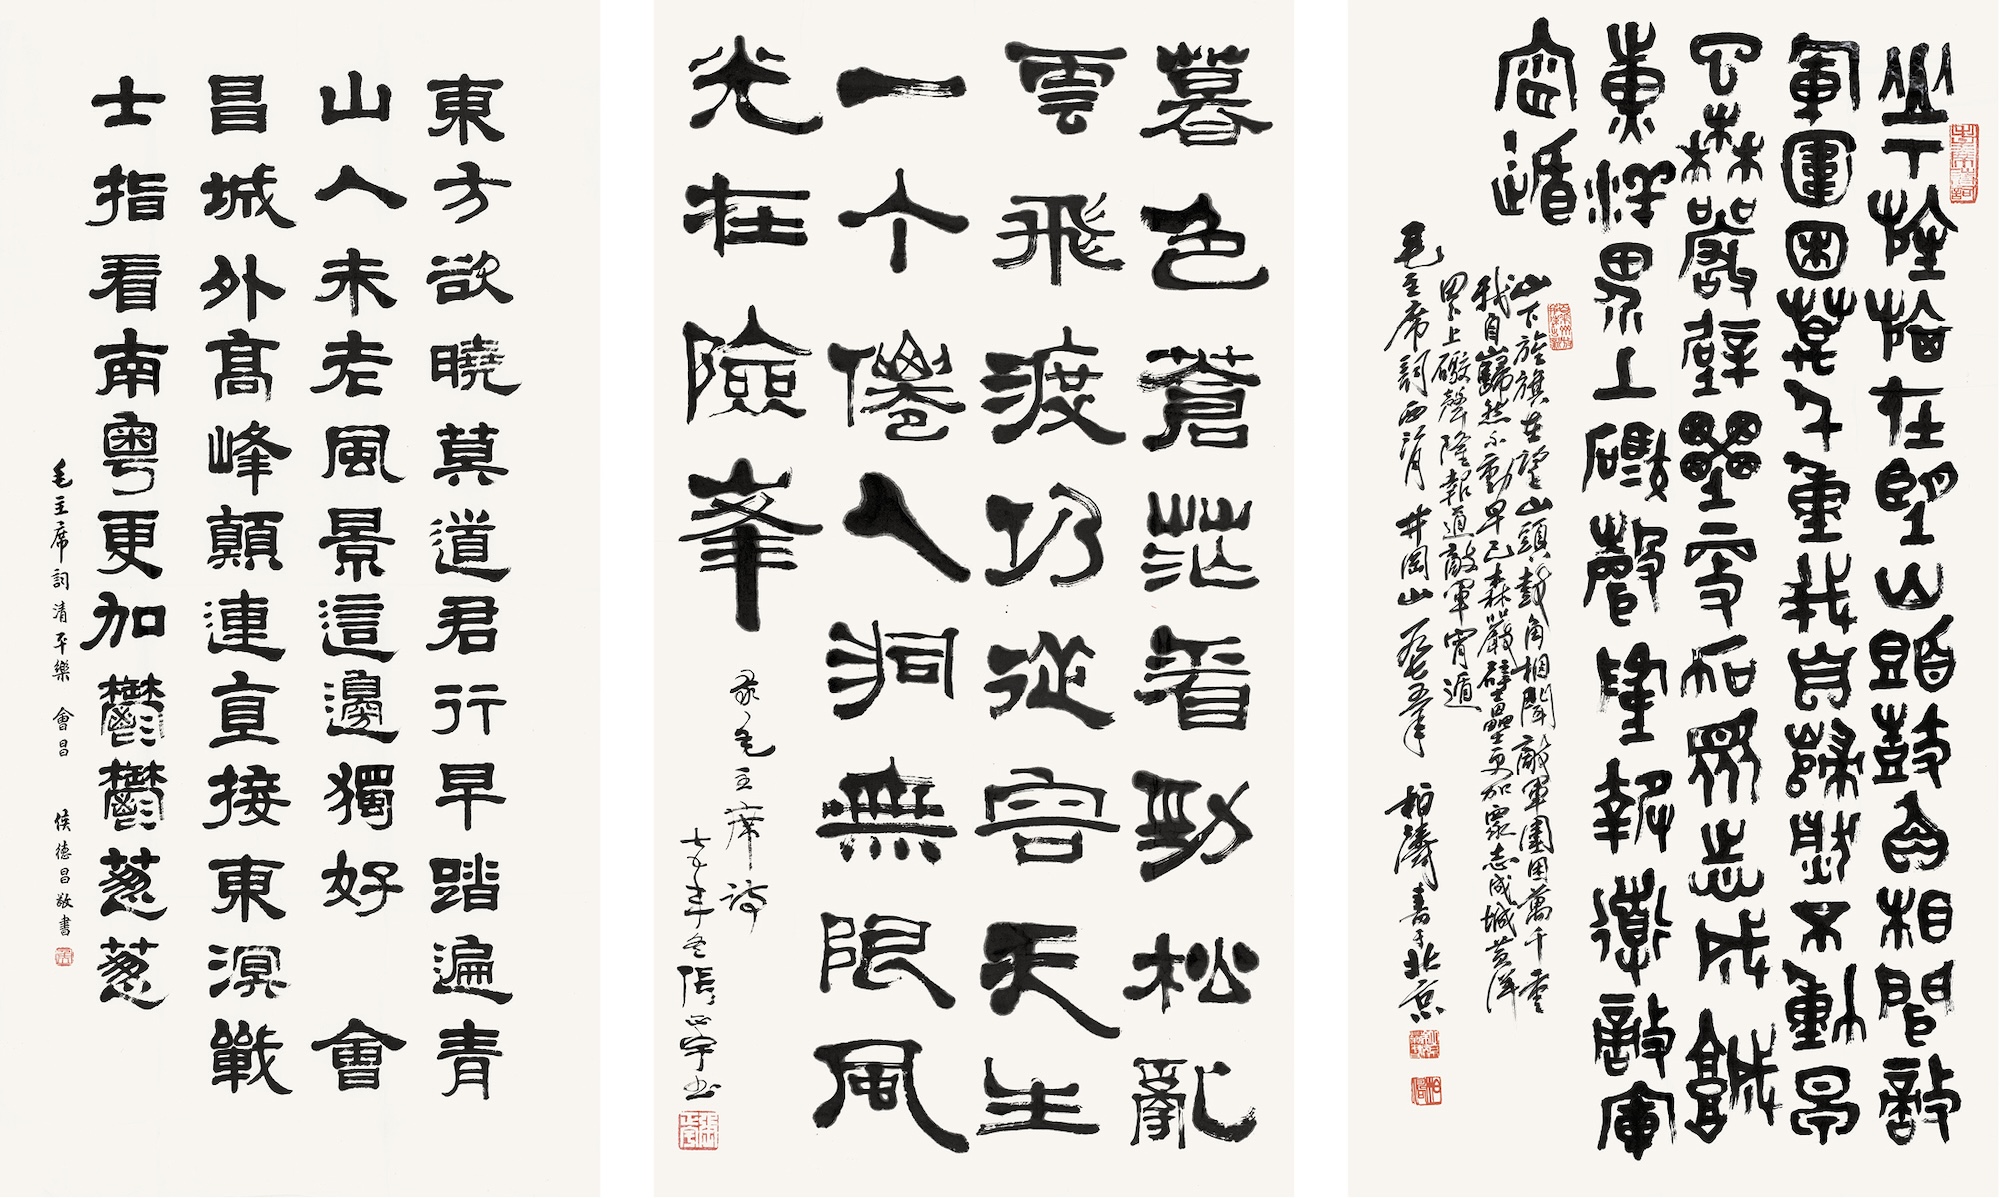 東方欲曉莫道君行早踏遍青
山人未老風景這邊獨好 會
昌城外髙峰顛連直接東溟戰
士指看南粵更加鬱鬱蔥蔥
毛主席詞清平樂 會昌 侯德昌敬書
暮色蒼茫看勁松亂
雲飛渡仍從容天生
一个僊人洞無限風
光在險峯
录毛主席詩
七五年冬張正宇书
山下旌旗在望山頭鼓角相聞敵
軍圍困萬千重我自巋然不動早
已森嚴壁壘更加眾志成城
黃洋界上礮聲隆報道敵軍
宵遁
山下旌旗在望山頭鼓角相聞敵軍圍困萬千重
我自巋然不動早已森嚴壁壘更加眾志成城黃洋
界上礮聲隆報道敵軍宵遁
毛主席詞西江月 井岡山 一九七五年 柏濤書于北京